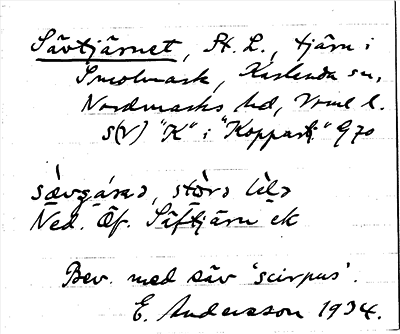 Sävtjärnet, St. L., tjärn i
Smolmark, Karlanda sn,
Nordmarks hd, Vrml l.
S(V) "K" i "Kopparb." 970
stòrə lìlə
Ned. Öf. Säftjärn ek
Bev. med säv 'scirpus'.
E. Andersson 1934.